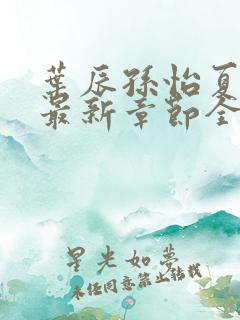 叶辰孙怡夏
最新章节全
星光如梦
未经同意禁止转载